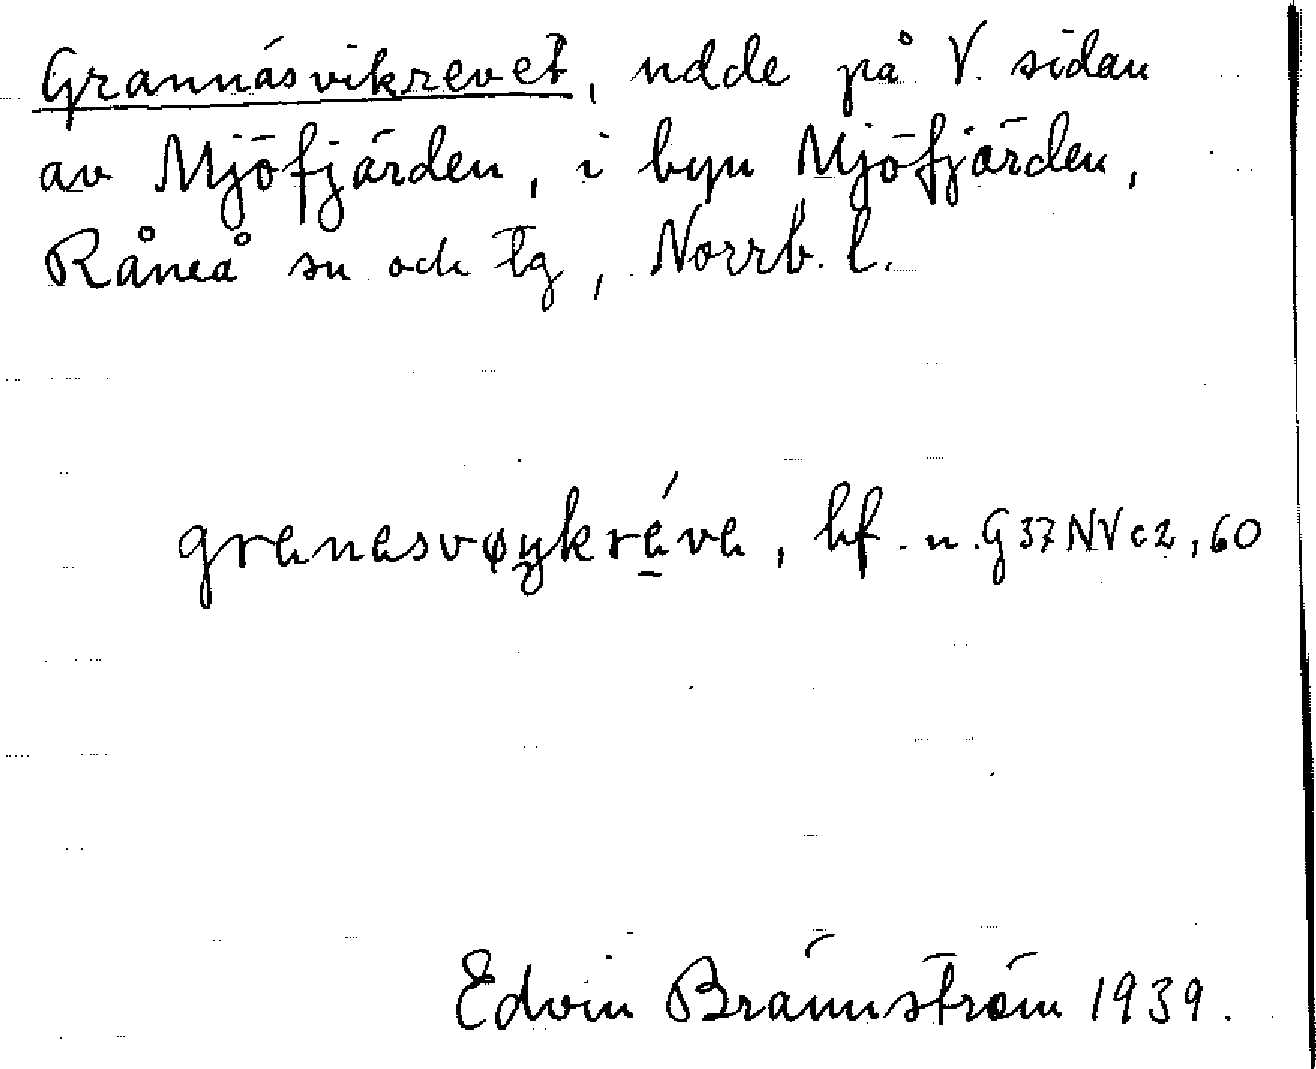 Grannäsvikrevet, udde på V. sidan
av Mjöfjärden, i byn Mjöfjärden,
Råneå sn och tg, Norrb. l.
granasvøykréva, bf. n. G37NVc2, 60
Edvin Brännström 1939.